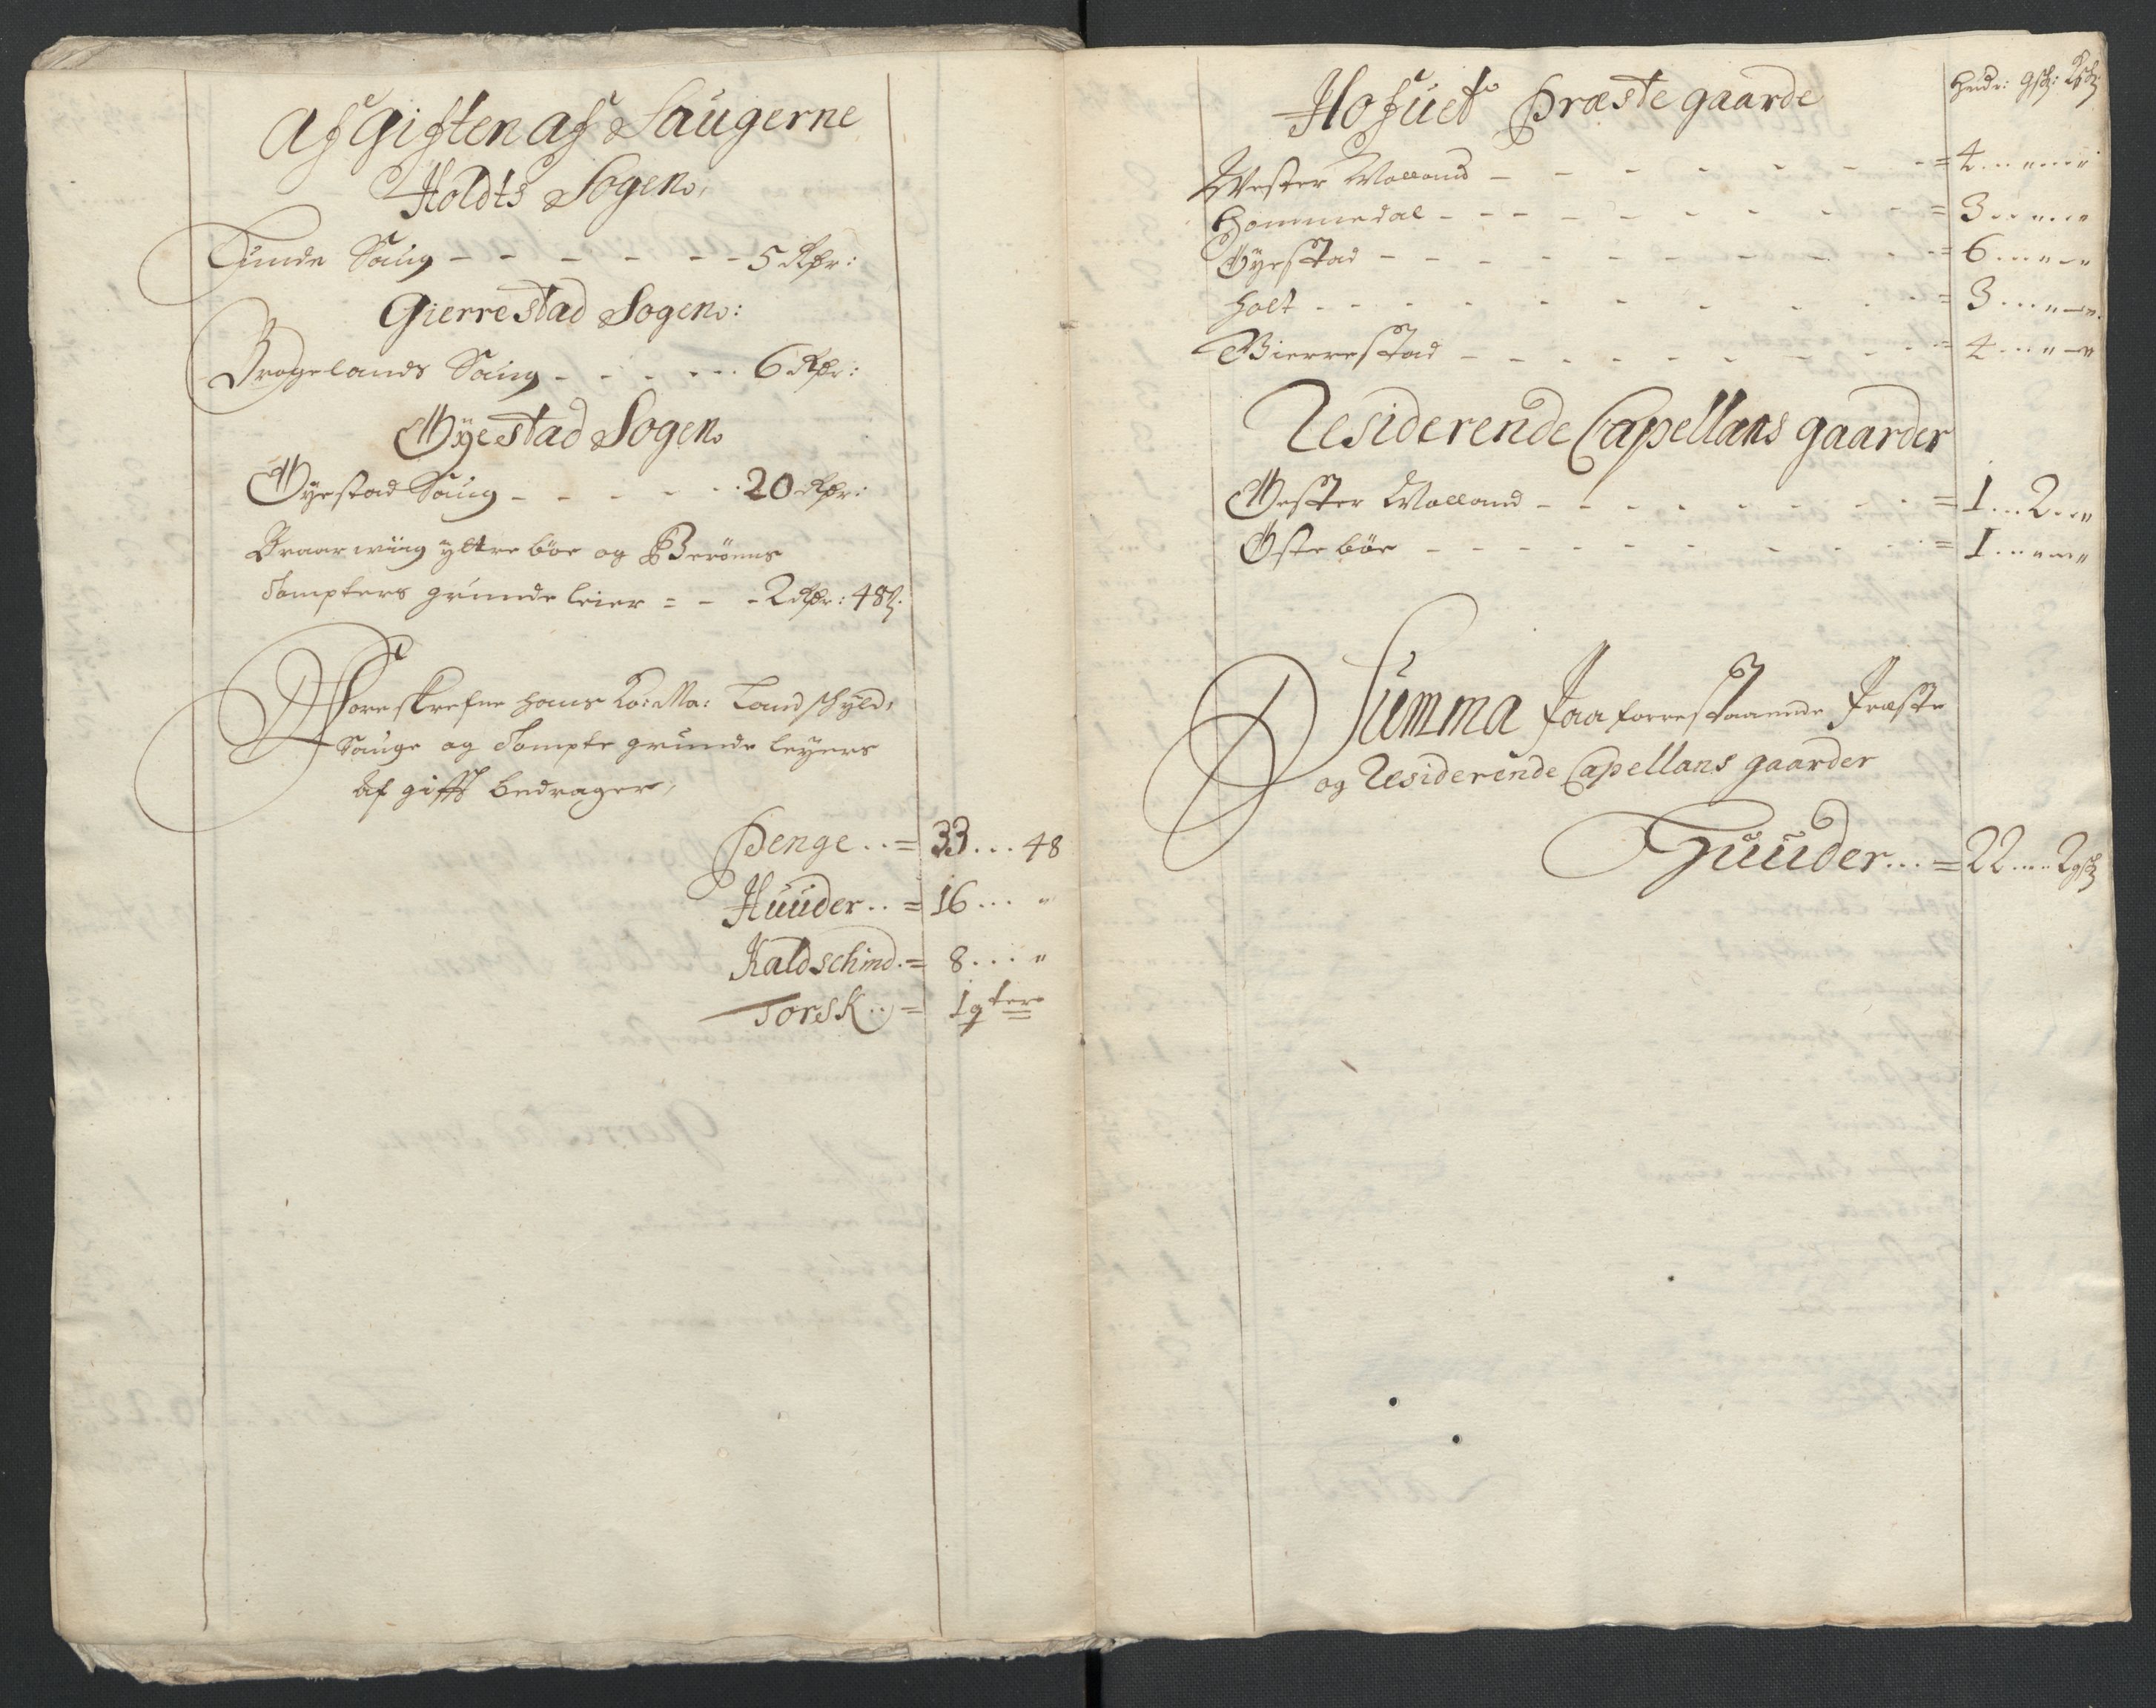 Afgiften af Saugerne
Holdts Sogen,
Tuede Saug - - - - - - - 5 Rdr:
Gierrestad Sogen:
Brogelands Saug - - - - - - 6 Rdr:
Øyestad Sogen
Øyestad Saug - - - - - 20 Rdr:
Braarwiig yttre böe og Beröens
Tompters grunde leier = - - 2 Rdr: 48 s.
Foreskrefne hans Ko: Ma: Landschyld,
Sauge og Tompte grunde leyers
Af gifft bedrager,
Penge .. = 33 ... 48
Huuder .. = 16 ... "
Kaldschind .= 8 .... "
Torsk .. = 1 qter
Hofuet Præste gaarde
Hude: gsk: ksk:
Wester Molland - - - - - - - = 4 ... " .... "
Hommedal - - - - - - - - - = 3 ... " ... "
Øyestad - - - - - - - - - = 6 ... " - "
Holt - - - - - - - - - = 3 .... " - ".
Gierrestad - - - - - - - - - = 4 ... " - "
Residerende Capellans gaarder
Øester Molland - - - - - - - - = 1 ... 2 ... "
Østeböe - - - - - - - - - = 1 .... " .. "
Summa Paa forrestaaende Præste
og Residerende Capellans gaarder
Huuder ... = 22 .... 2 gsk